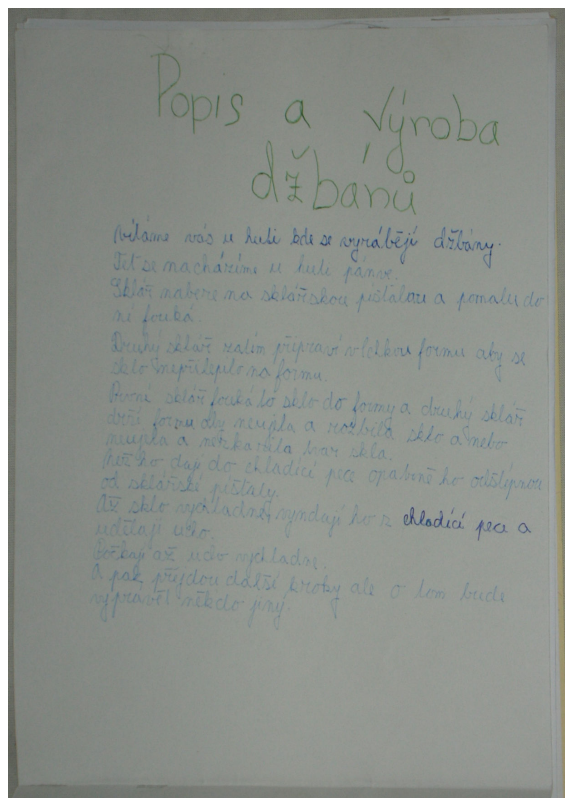 Popis a výroba
džbánů
Vítáme vás u huti kde se vyrábějí džbány.
Teť se nacházíme u huti pánve.
Sklář nabere na sklářskou píšťalou a pomalu do
ní fouká.
Druhý sklář zatím připraví vlhkou formu aby se
sklo nepřilepilo na formu.
První sklář fouká to sklo do formy a druhý sklář
drží formu aby neujela a rozbila sklo a nebo
neujela a nezkazila tvar skla.
Než ho dají do chladící pece opatrně ho odštípnou
od sklářské píšťaly.
Až sklo vychladne, vyndají ho z chladící pece a
udělají ucho.
Počkají až ucho vychladne.
A pak přijdou další kroky ale o tom bude
vyprávět někdo jiný.